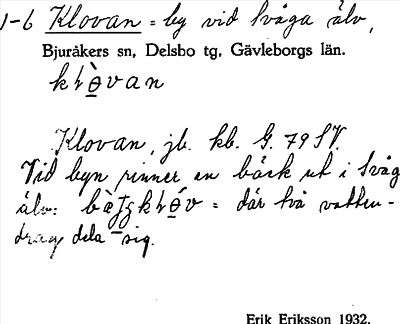 1-6 Klovan = by vid Svåga älv,
Bjuråkers sn, Delsbo tg, Gävleborgs län.
Klovan, jb. kb. G. 79 SV.
Vid byn rinner en bäck ut i Svåg
älv: = där två vatten-
drag dela sig.
Erik Eriksson 1932.